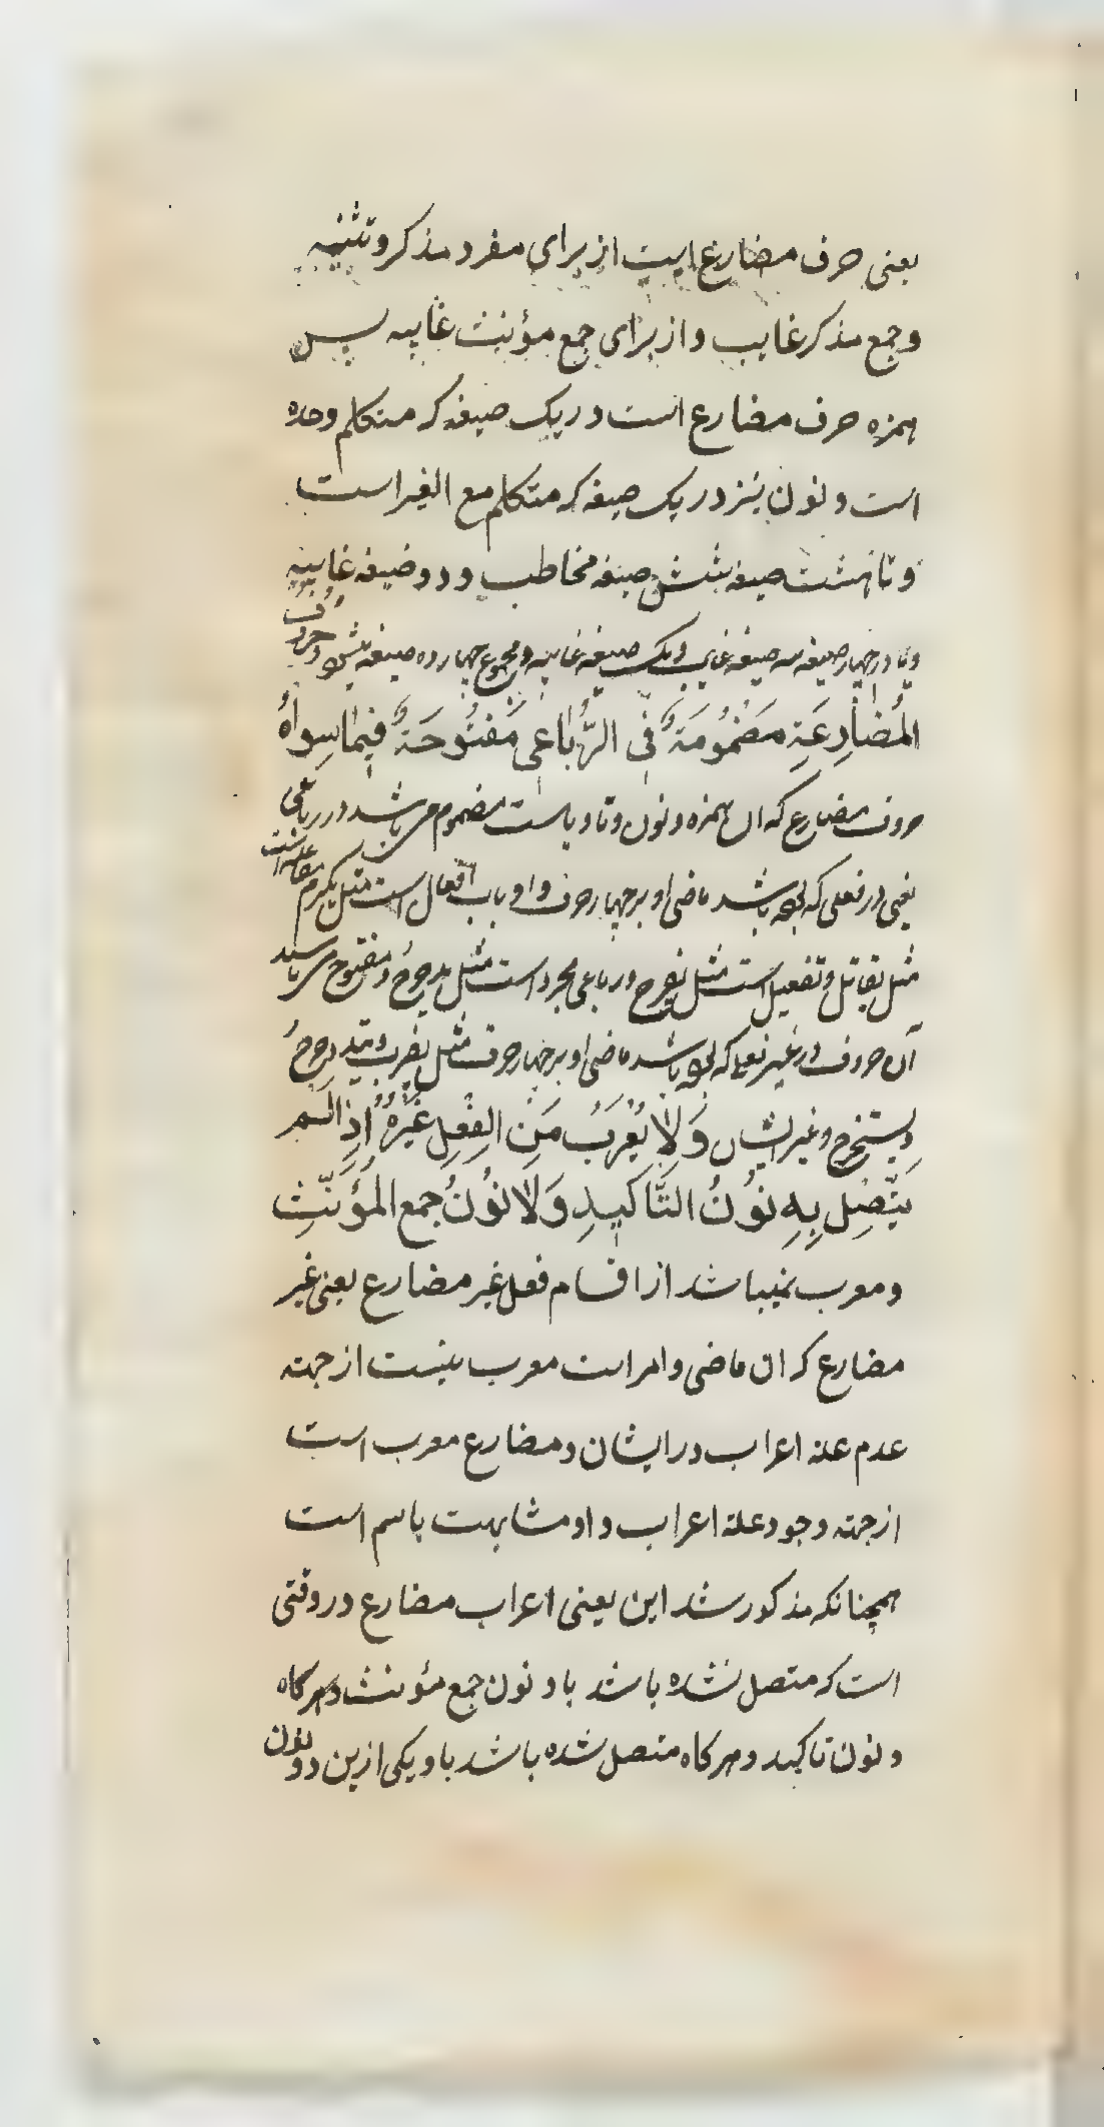 یعنی حرف مضارع است از برای مفرد مذکر و تثنیه
و جمع مذکر غایب و از برای جمع مؤنث غایبه پس
همزه حرف مضارع است در یک صیغه که متکلم وحده
است و نون نیز در یک صیغه که متکلم مع الغیر است
و تا در هشت صیغه شش صیغه مخاطب و دو صیغه غایبه
و یا در چهار صیغه سه صیغه غایب و یک صیغه غایبه و مجموع چهارده صیغه میشود و حروف
المُضارِعَةِ مَضْمُومَةٌ فِی الرُّباعِی مَفْتُوحَةٌ فیما سِواهُ
حروف مضارع که آن همزه و نون و تا و یاست مضموم می باشد در رباعی
یعنی در فعلی که بوده باشد ماضی او بر چهار حرف و او باب افعال است مثل یکرم مفاعله است
مثل یقاتل و تفعیل است مثل یفرح و رباعی مجرد است مثل یدحرج و مفتوح می باشد
آن حروف در غیر فعلی که بوده باشد ماضی او بر چهار حرف مثل یضرب و یتدحرج
و یستخرج و غیر ایشان وَلا یُعْرَبُ مِنَ الفِعْلِ غَیْرُهُ اِذا لَم
یَتَّصِلْ بِهِ نُوْنُ التَّاکیدِ وَلا نُوْنُ جمع المُؤَنَّثِ
و معرب نمیباشد از اقسام فعل غیر مضارع یعنی غیر
مضارع که آن ماضی و امر است معرب نیست از جهته
عدم علة اعراب در ایشان و مضارع معرب است
از جهته وجود علة اعراب و او مشابهت باسم است
همچنانکه مذکور شد این یعنی اعراب مضارع در وقتی
است که متصل نشده باشد با و نون جمع مؤنث و هر کاه
و نون تاکید و هر کاه متصل شده باشد با و یکی ازین دو نون